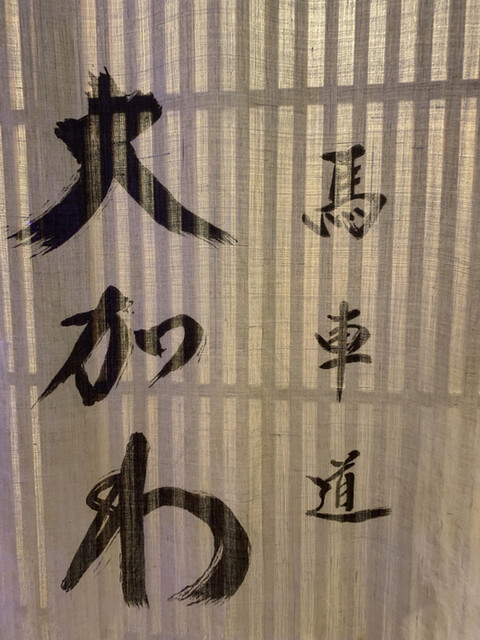 馬車道
大加わ